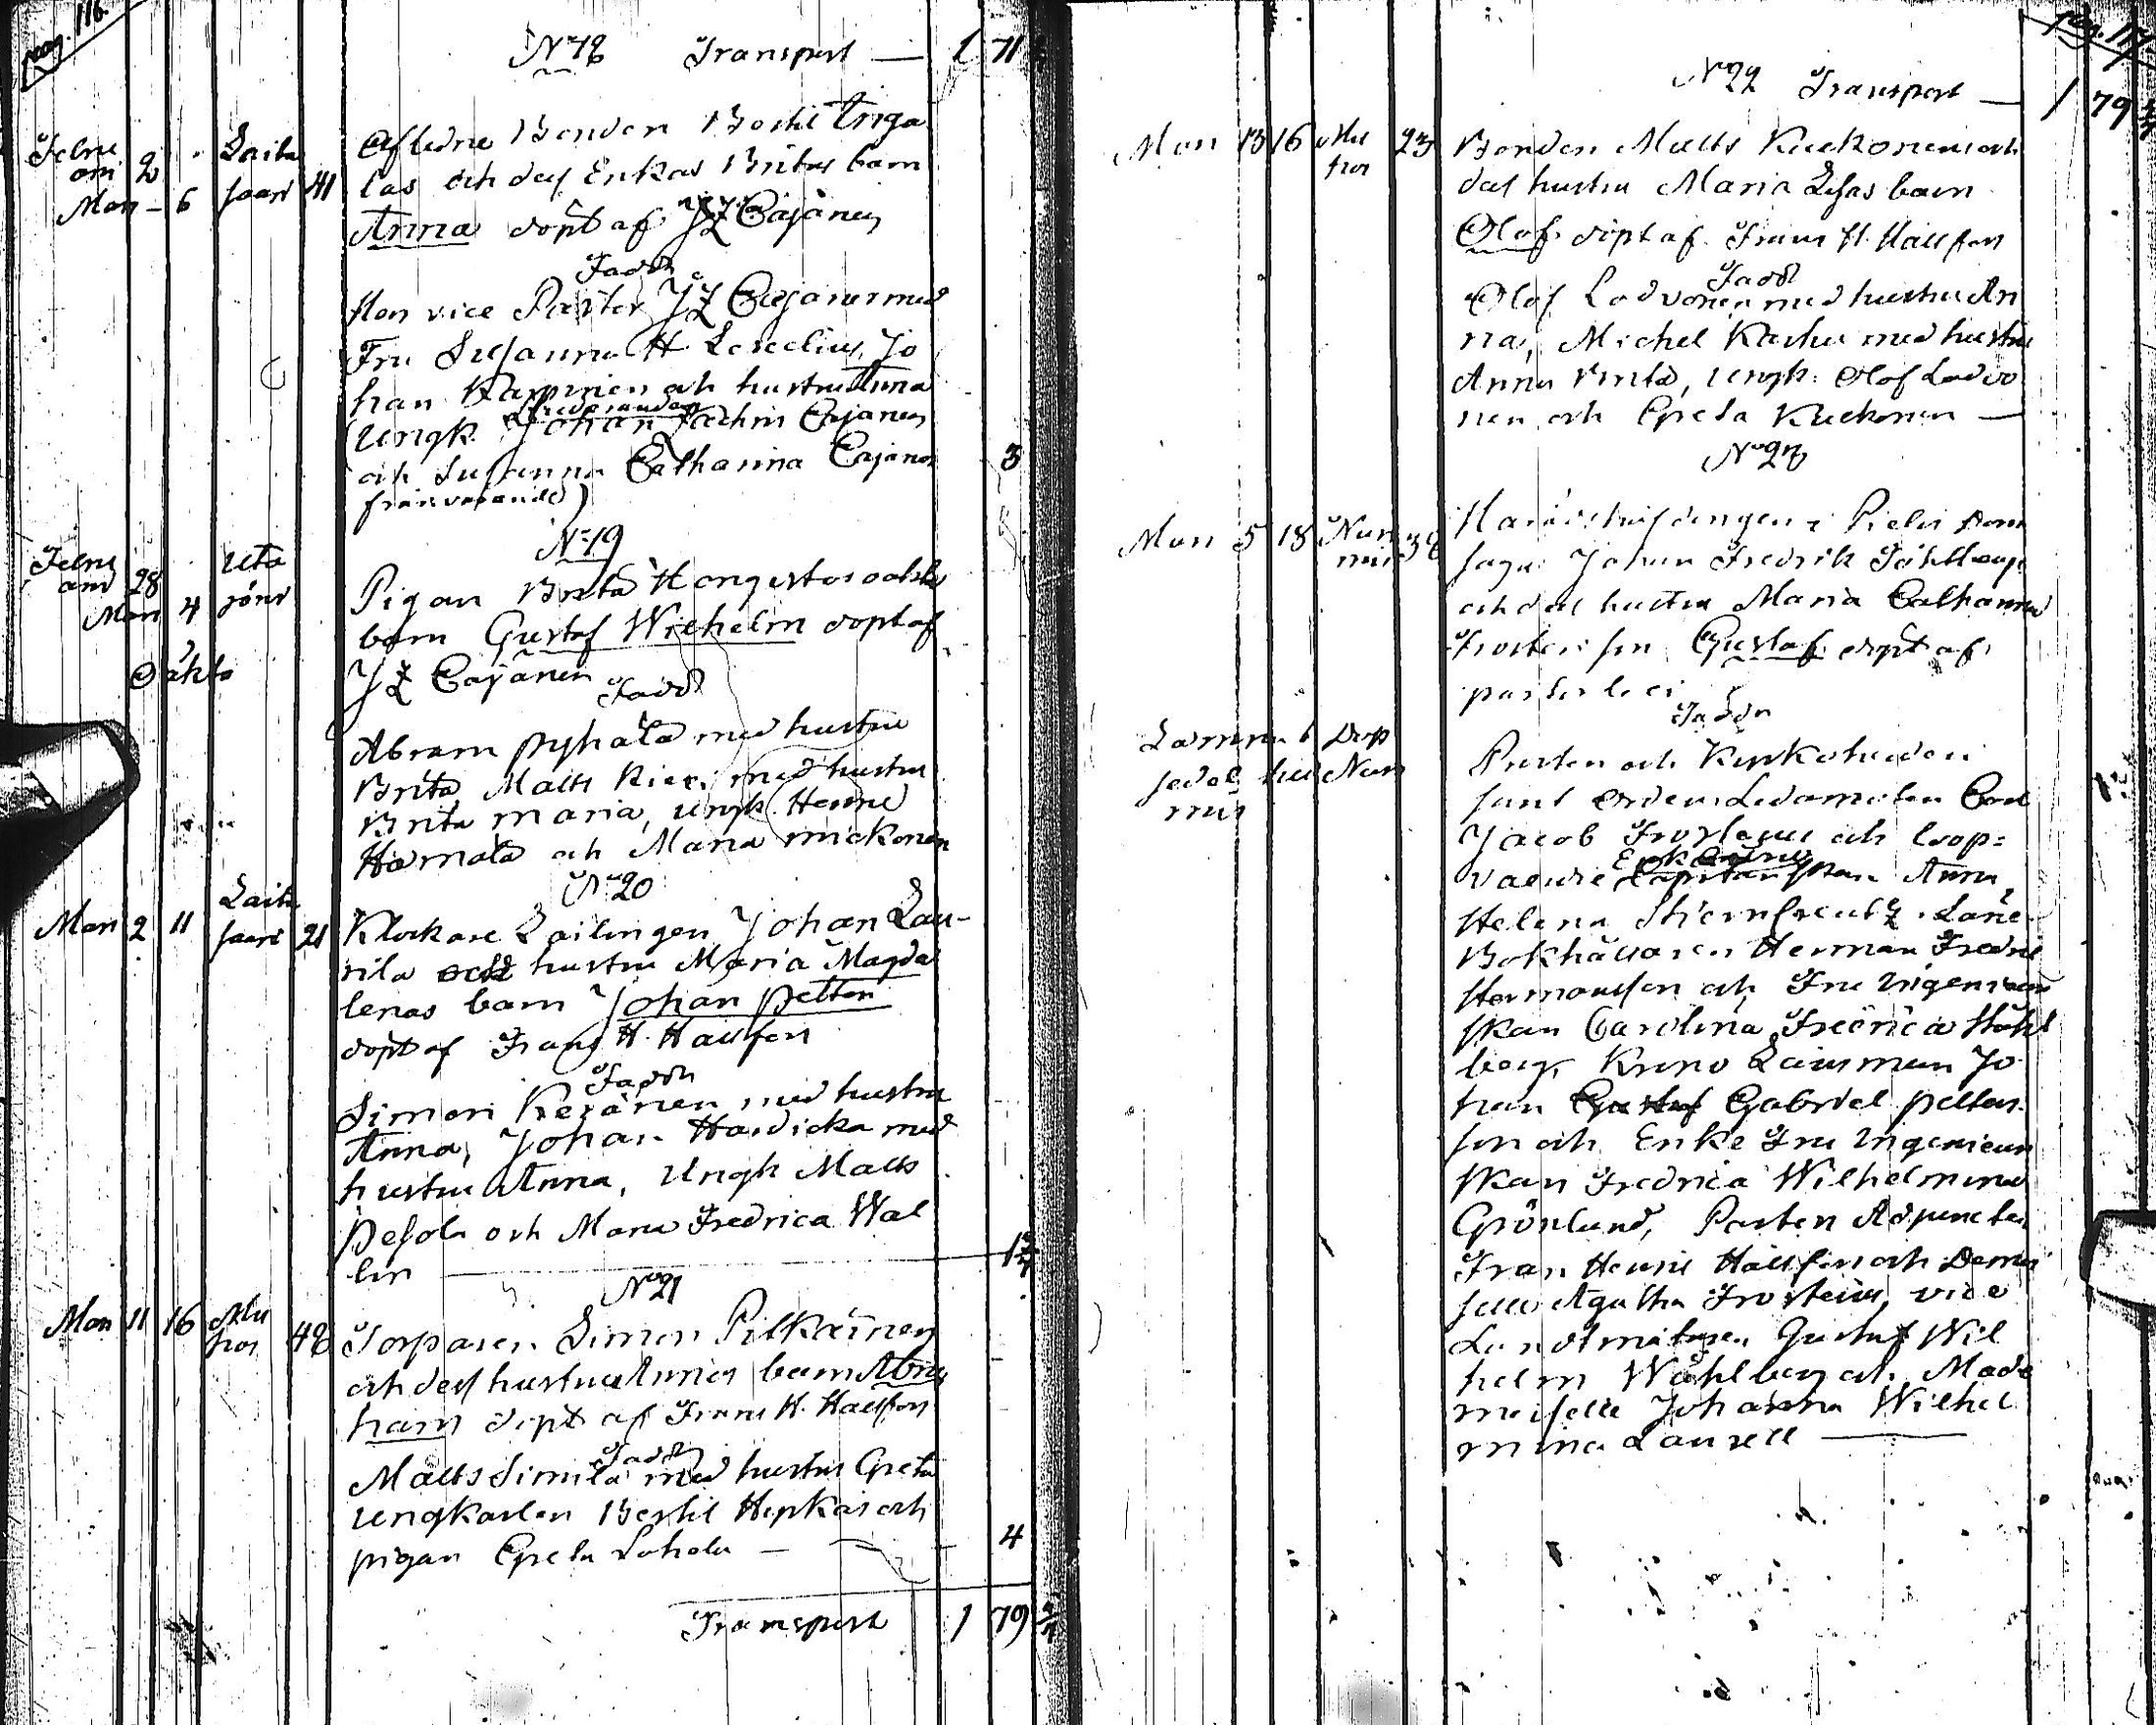 pag. 116.
N:18 Transport — 1 71
Febru
ari 2 Laita
Mars 6 saari 41
Afledne Bonden Bertil Griga
las och dess Enkas Britas barn
Anna döpt af JZ Cajanus
Fadd.
Herr vice Pastor JZ Cajanus med
Fru Susanna H. Jo
han Karppinen och hustru Anna
Ungk. Johan Joachim Cajanus
och Susanna Catharina Cajanus 3
frånvarande)
N:19
Febru
ari 28 Uta
Mars 4 järvi
Oäkta
Pigan Brita Hongistos oäkta
barn Gustaf Wilhelm döpt af
JZ Cajanus
Fadd
Abram Pyhälä med hustru
Brita Matts med hustru
Brita Maria, ungk. Henric
Hämälä och Maria Mickonen
N:20
Mars 2 11 Laita
saari 21
Klockare Lärlingen Johan Lau-
rila och hustru Maria Magda
lenas barn Johan Petter
döpt af Frans H. Hällfors
Faddr
Simon Keränen med hustru
Anna, Johan Hardicka med
hustru Anna, Ungk Matts
Pesola och Maria Fredrica Wal
lin
N:21
Mars 11 16 Mu
hos 48
Torparen Simon Pitkäinen
och dess hustru Annas barn Abra
ham döpt af Frans H. Hällfors
Fadd
Matts Simila med hustru Greta
ungkarlen Bertil Hepkäi och
pigan Greta Lohela — 4
Transport 1 79 3/4
pag. 117
N:22 Transport — 1 79 3/4
Mars 13 16 Mu
hos 23
Bonden Matts Kuckonen och
dess hustru Maria Lisas barn
Olof döpt af Frans H. Hällfors
Fadd
Olof Lodvonen med hustru An
na, Michel Karhu med hustru
Anna Brita, Ungk: Olof Lodvo
nen och Greta Kuckonen —
N:23
Mars 5 18 Nur
mis 38
Häradshöfdingen i Pielis Dom
saga Johan Fredrik Ståhlberg
och dess hustru Maria Catharina
Frosterus son Gustaf döpt af
pastor loci
Faddr
Prosten och Kyrkoherden
samt Ordens Ledamoten Carl
Jacob Frosterus och Wäl=
Anna
Helena Stjerncreutz. Läne
Bokhållaren Herman Fredric
Hermansson och Fru Ingenieur
skan Carolina Fredrica Ståhl
berg. Krono Länsman Jo
han Gustaf Gabriel Petters
son och Enke Fru Ingenieur
skan Fredrica Wilhelmina
Grönlund, Pastors Adjuncten
Frans Henric Hällfors och Demoi
selle Agatha Frosterus, vice
Landtmätaren Gustaf Wil
helm Wåhlberg och Made
moiselle Johanna Wilhel
mina Laurell —